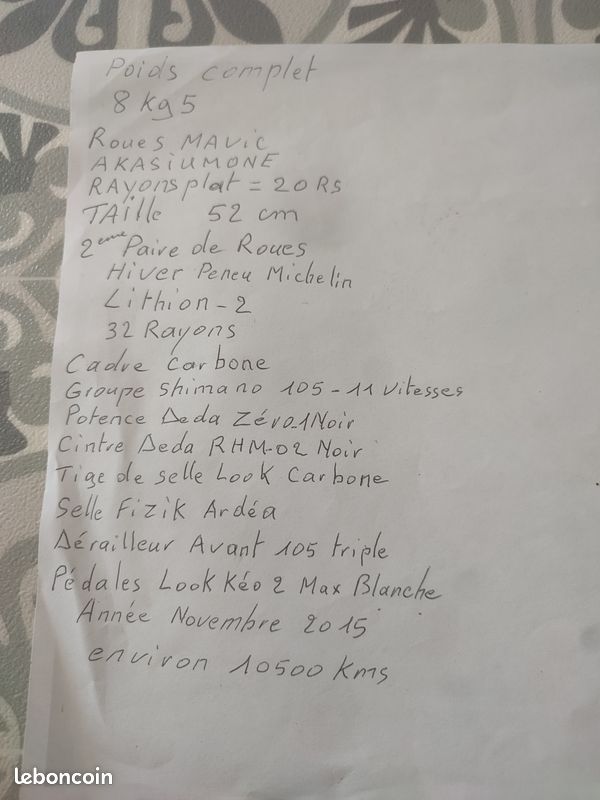 Poids complet
8 kg 5
Roues MAVIC
AKASIUMONE
RAYons plat = 20 RS
TAille 52 cm
2eme Paire de Roues
Hiver Peneu Michelin
Lithion - 2
32 Rayons
Cadre Carbone
Groupe shimano 105 - 11 vitesses
Potence Deda Zéro.1 Noir
Cintre Deda RHM-02 Noir
Tige de selle Look Carbone
Selle Fizik Ardéa
Dérailleur Avant 105 triple
Pédales Look Kéo 2 Max Blanche
Année Novembre 2015
environ 10500 kms
leboncoin